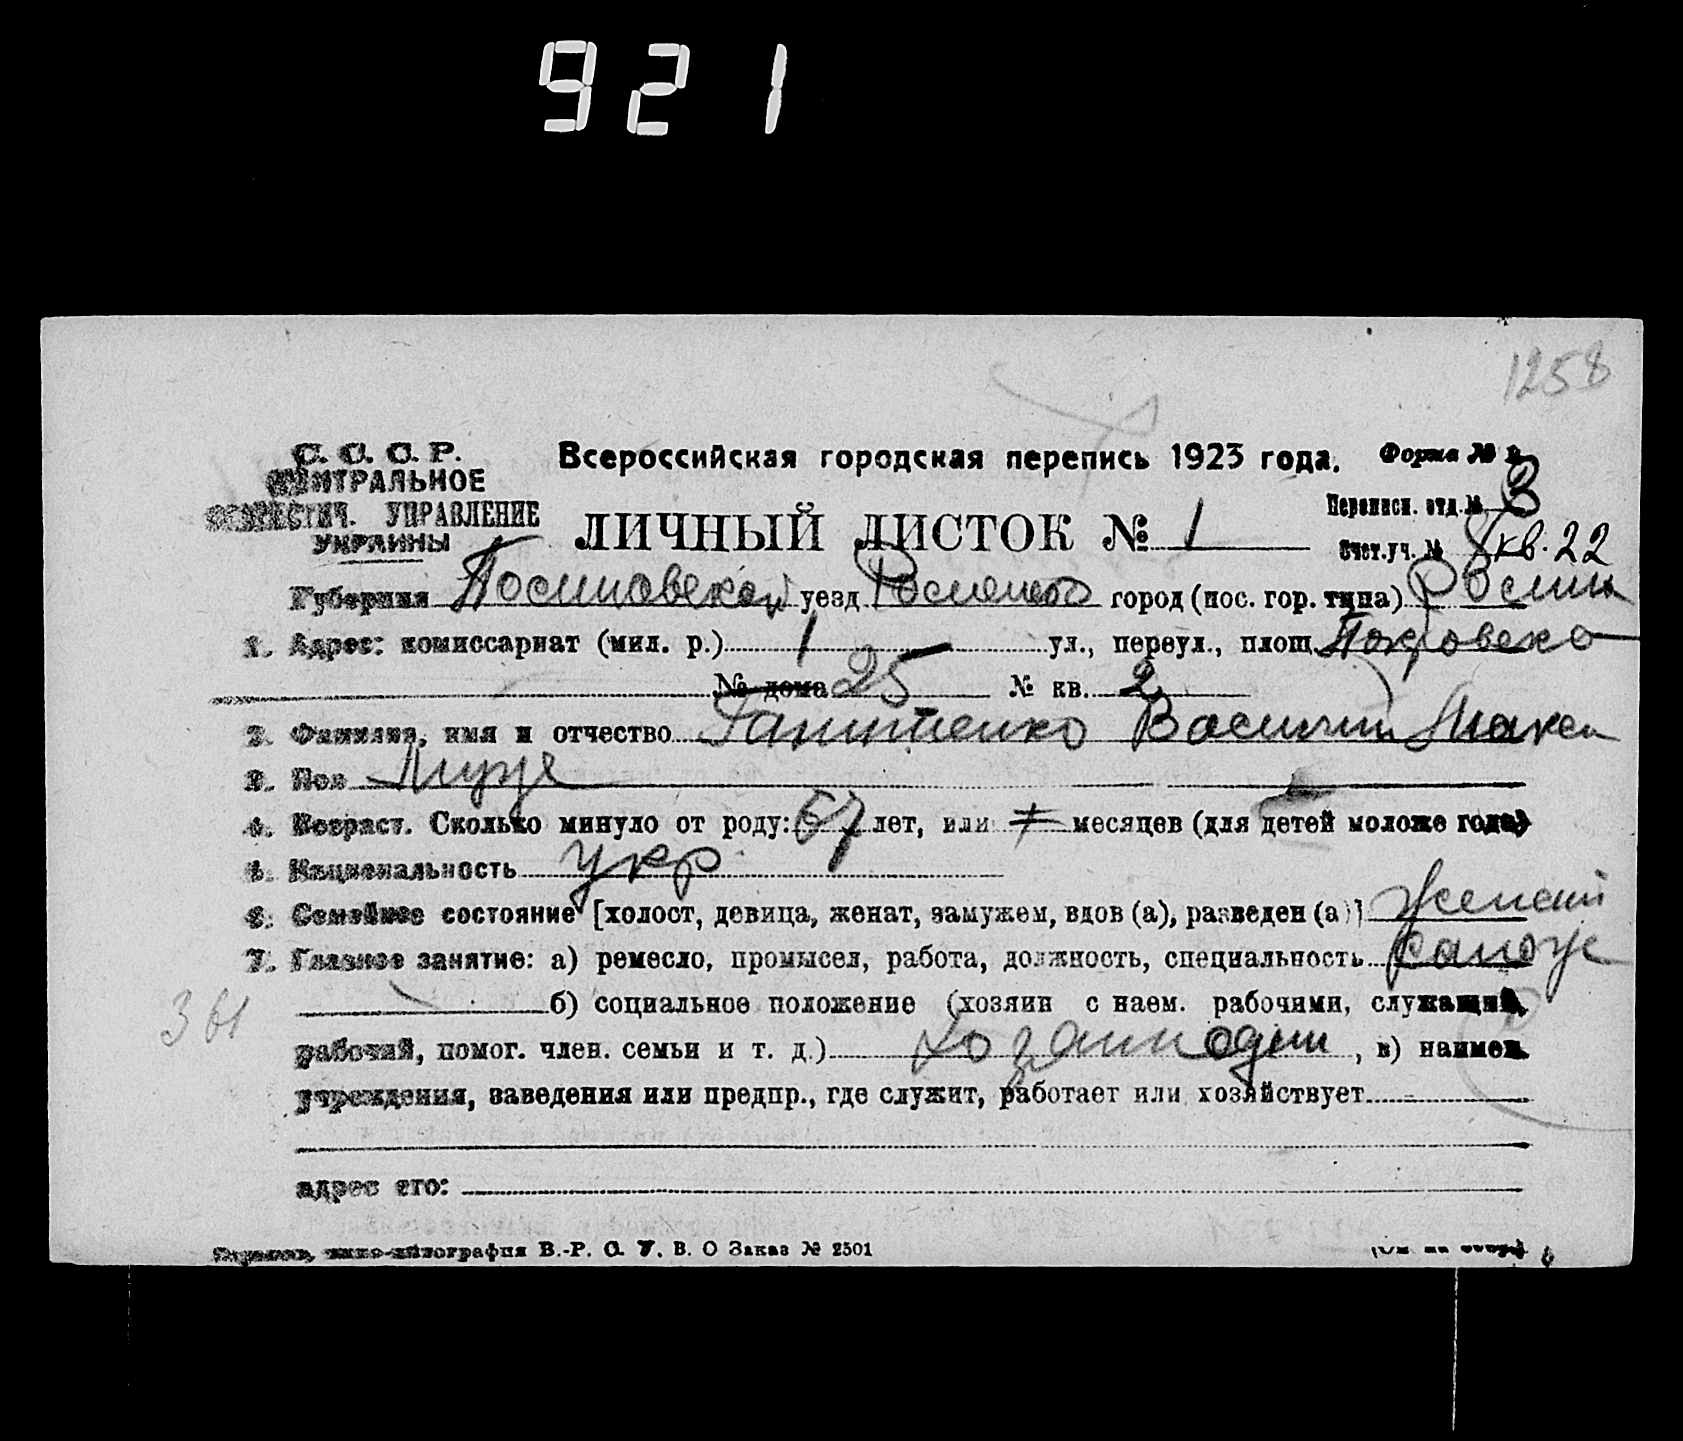 921
1258
С. С. С. Р. Всероссийская городская перепись 1923 года. Форма №
ЦЕНТРАЛЬНОЕ
Переписн. отд. № 3
СТАТИСТИЧ. УПРАВЛЕНИЕ ЛИЧНЫЙ ЛИСТОК № 1
УКРАИНЫ Счет. уч. № 8 кв. 22
Губерния уезд город (пос. гор. типа)
1. Адрес: комиссариат (мил. р.) 1 ул., переул., площ. Покровска
№ дома 25 № кв. 2
2. Фамилия, имя и отчество Василий Макси
3. Пол Муж
4. Возраст. Сколько минуло от роду: 57 лет, или месяцев (для детей моложе года)
5. Национальность укр
6. Семейное состояние [холост, девица, женат, замужем, вдов (а), разведен (а)]
7. Главное занятие: а) ремесло, промысел, работа, должность, специальность сапож
361
б) социальное положение (хозяин с наем. рабочими, служащий,
рабочий, помог. член. семьи и т. д.) хозяин один, в) наимен.
учреждения, заведения или предпр., где служит, работает или хозяйствует
адрес его:
В.-Р. С. У. В. О Заказ № 2501